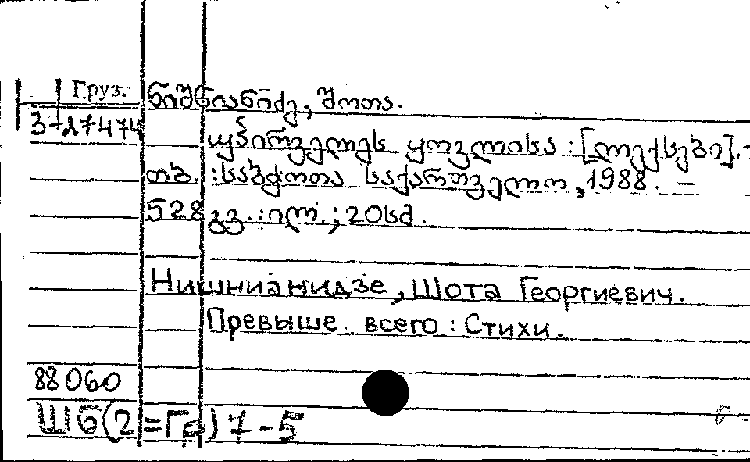 Груз. ნიშნიანიძე, შოთა.
3-27474
უპირველეს ყოვლისა : [ლექსები]. -
თბ. : საბჭოთა საქართველო, 1988. —
528 გვ. : ილ. ; 20სმ.
Нишнианидзе, Шота Георгиевич.
Превыше всего : Стихи.
88060
Шб(2=Гр)7-5